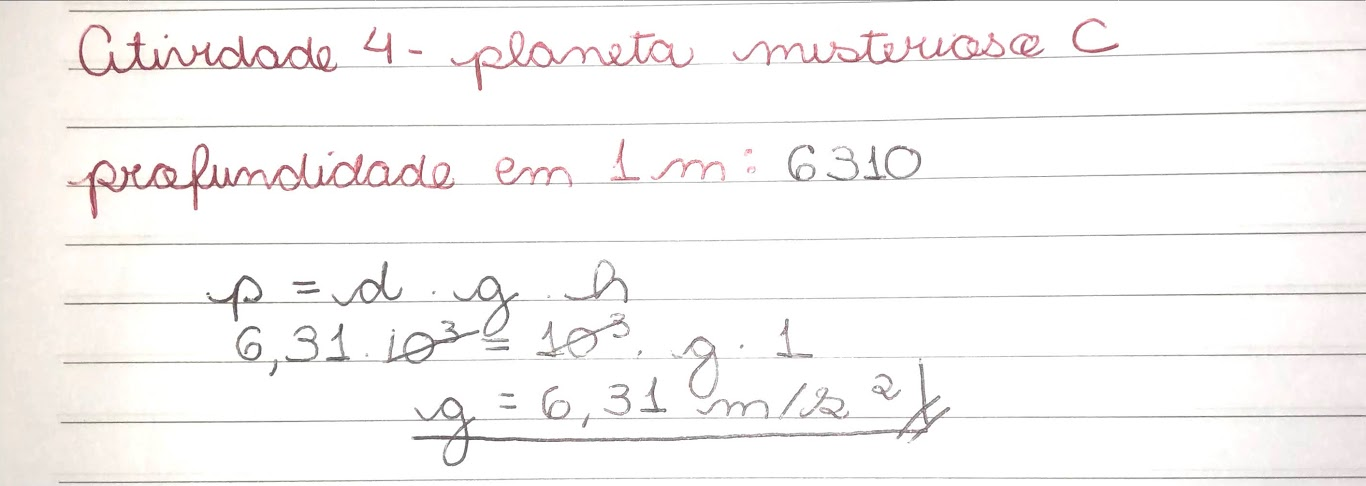 Atividade 4 - planeta misterioso C
profundidade em 1 m: 6310
p = d . g . h
6,31 . 10³ = 10³ . g . 1
g = 6,31 m/s²